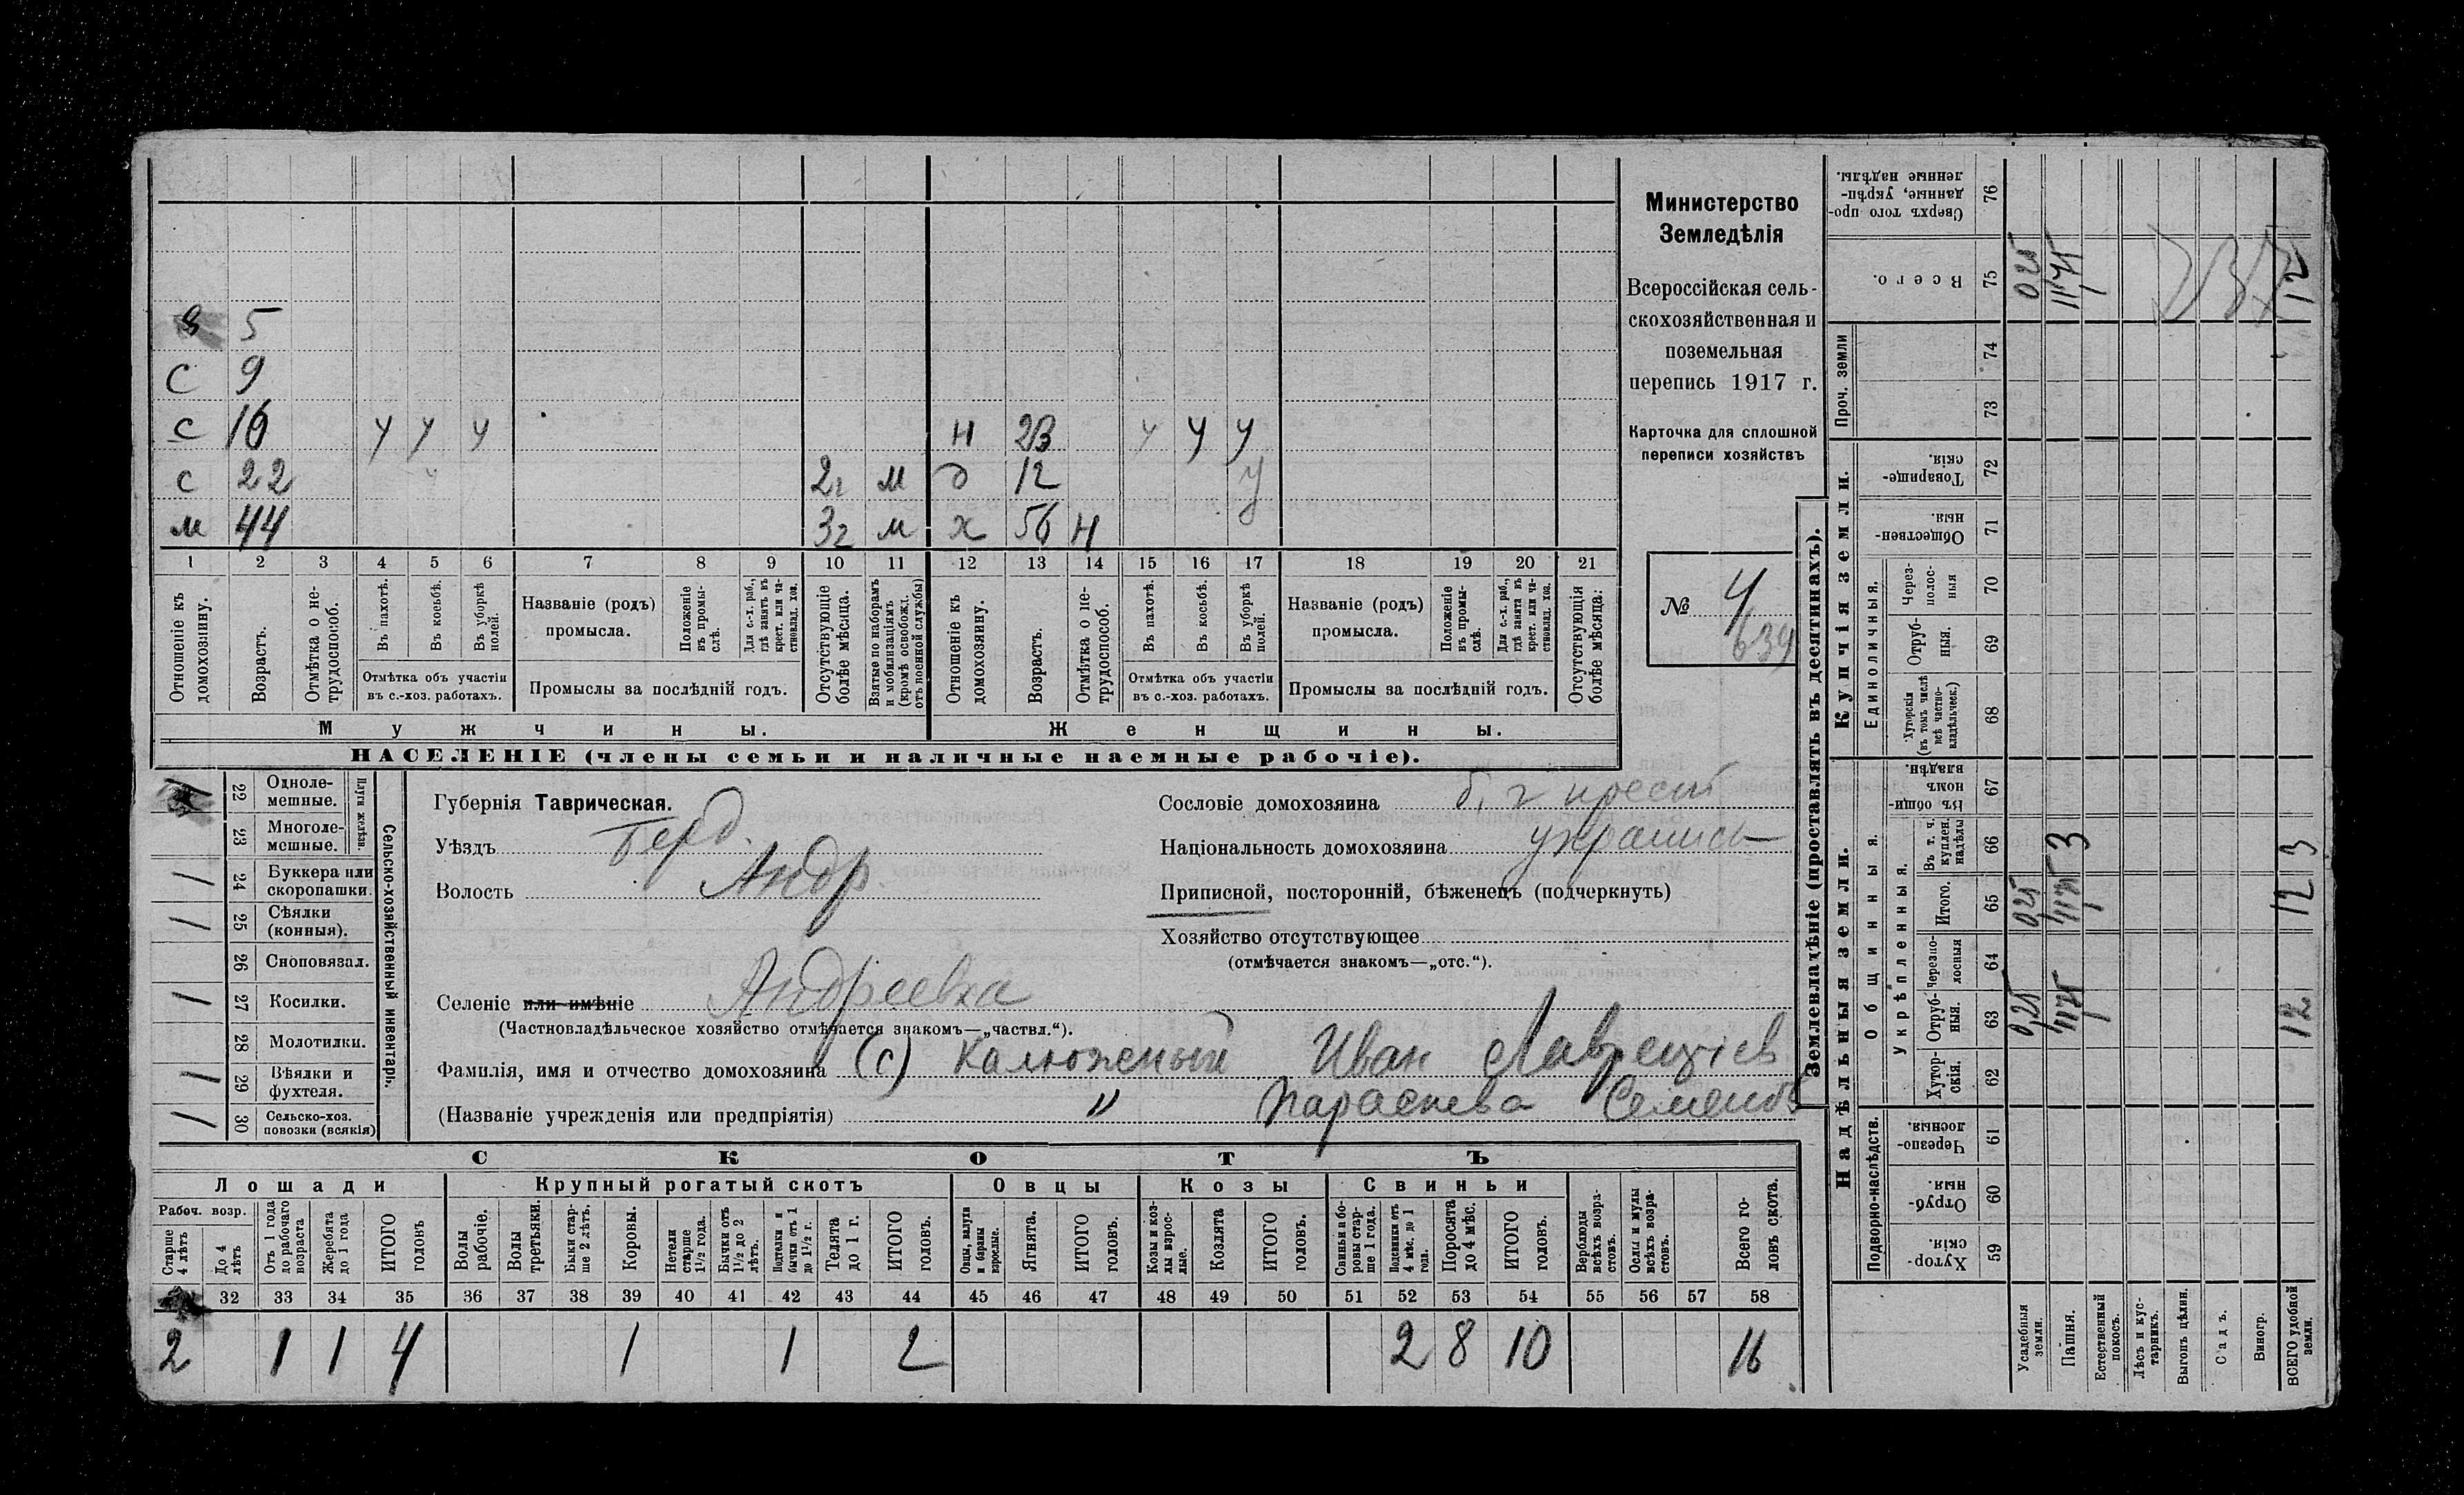 Министерство
Земледѣлія
Всероссійская сель-
скохозяйственная и
поземельная
перепись 1917 г.
Карточка для сплошной
переписи хозяйствъ
№ 4
639
5
с 9
с 16 у у у н 23 у у у
с 22 2г м д 12 у
м 44 3г м х 56 н
1 2 3 4 5 6 7 8 9 10 11 12 13 14 15 16 17 18 19 20 21
Отношеніе къ домохозяину.
Возрастъ.
Отмѣтка о не-трудоспособ.
Въ пахотѣ.
Въ косьбѣ.
Въ уборкѣ полей.
Отмѣтка объ участіи
въ с.-хоз. работахъ.
Названіе (родъ)
промысла.
Положеніе въ промы-слѣ.
Для с.-х. раб., гдѣ занятъ въ крест. или ча-стновлад. хоз.
Промыслы за послѣдній годъ.
Отсутствующіе болѣе мѣсяца.
Взятые по наборамъ и мобилизаціямъ (кромѣ освобожд. отъ военной службы)
Отношеніе къ домохозяину.
Возрастъ.
Отмѣтка о не-трудоспособ.
Въ пахотѣ.
Въ косьбѣ.
Въ уборкѣ полей.
Отмѣтка объ участіи
въ с.-хоз. работахъ.
Названіе (родъ)
промысла.
Положеніе въ промы-слѣ.
Для с.-х. раб., гдѣ занята въ крест. или ча-стновлад. хоз.
Промыслы за послѣдній годъ.
Отсутствующія болѣе мѣсяца.
Мужчины. Женщины.
НАСЕЛЕНІЕ (члены семьи и наличные наемные рабочіе).
Сельско-хозяйственный инвентарь.
Плуги желѣз.
22 Одноле-мешные.
23 Многоле-мешные.
1 24 Буккера или скоропашки.
1 25 Сѣялки (конныя).
26 Сноповязал.
1 27 Косилки.
28 Молотилки.
1 29 Вѣялки и фухтеля.
1 30 Сельско-хоз. повозки (всякія)
Губернія Таврическая.
Уѣздъ Берд.
Волость Андр.
Селеніе или имѣніе Андреевка
(Частновладѣльческое хозяйство отмѣчается знакомъ—„частвл.“).
Фамилія, имя и отчество домохозяина (с) Калюжный Иван
(Названіе учрежденія или предпріятія) " Параскева Семенов
Сословіе домохозяина б. г крест
Національность домохозяина
Приписной, посторонній, бѣженецъ (подчеркнуть)
Хозяйство отсутствующее
(отмѣчается знакомъ—„отс.“).
СКОТЪ
Лошади Крупный рогатый скотъ Овцы Козы Свиньи
Рабоч. возр.
Старше 4 лѣтъ
До 4 лѣтъ
Отъ 1 года до рабочаго возраста
Жеребята до 1 года
ИТОГО головъ
Волы рабочіе.
Волы третьяки.
Быки стар-ше 2 лѣтъ.
Коровы.
Нетели старше 1½ года.
Бычки отъ 1½ до 2 лѣтъ.
Подтелки и бычки отъ 1 до 1½ г.
Телята до 1 г.
ИТОГО головъ.
Овцы, валухи и бараны взрослые.
Ягнята.
ИТОГО головъ.
Козы и коз-лы взрос-лые.
Козлята
ИТОГО головъ.
Свиньи и бо-ровы стар-ше 1 года.
Подсвинки отъ 4 мѣс. до 1 года.
Поросята до 4 мѣс.
ИТОГО головъ.
Верблюды всѣхъ возра-стовъ.
Ослы и мулы всѣхъ возра-стовъ.
Всего го-ловъ скота.
32 33 34 35 36 37 38 39 40 41 42 43 44 45 46 47 48 49 50 51 52 53 54 55 56 57 58
2 1 1 4 1 1 2 2 8 10 16
Землевладѣніе (проставлять въ десятинахъ).
Надѣльныя земли.
Купчія земли.
Проч. земли
Подворно-наслѣдств.
Общинныя.
Укрѣпленныя.
Единоличныя.
76 Сверхъ того про-данные, укрѣп-ленные надѣлы.
75 Всего. 0 25 11,75 12
74
73
72 Товарище-скія.
71 Обществен-ныя.
70 Через-полос-ныя
69 Отруб-ныя.
68 Хуторскія (въ томъ числѣ всѣ частно-владѣльческ.)
67 Въ общин-номъ владѣн.
66 Въ т. ч. куплен. надѣлы 3 3
65 Итого. 0 25 11,75 12
64 Черезпо-лосныя
63 Отруб-ныя. 0,25 11,75 12
62 Хутор-скія.
61 Черезпо-лосныя.
60 Отруб-ныя.
59 Хутор-скія.
Усадебныя земли.
Пашня.
Естественный покосъ.
Лѣсъ и кус-тарникъ.
Выгонъ цѣлин.
Садъ.
Виногр.
ВСЕГО удобной земли.